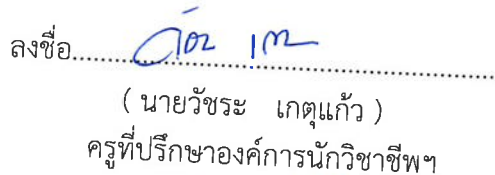 ลงชื่อ
( นายวัชระ เกตุแก้ว )
ครูที่ปรึกษาองค์การนักวิชาชีพฯ